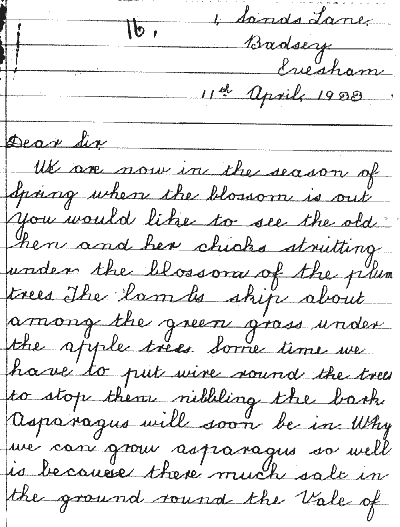 16.
1, Sands Lane,
Badsey
Evesham
11st April, 1938
Dear Sir,
We are now in the season of
Spring when the blossom is out
you would like to see the old
hen and her chicks strutting
under the blossom of the plum
trees The lambs skip about
among the green grass under
the apple trees. Some time we
have to put wire round the trees
to stop them nibbling the bark
Asparagus will soon be in. Why
we can grow asparagus so well
is because there much salt in
the ground round the Vale of